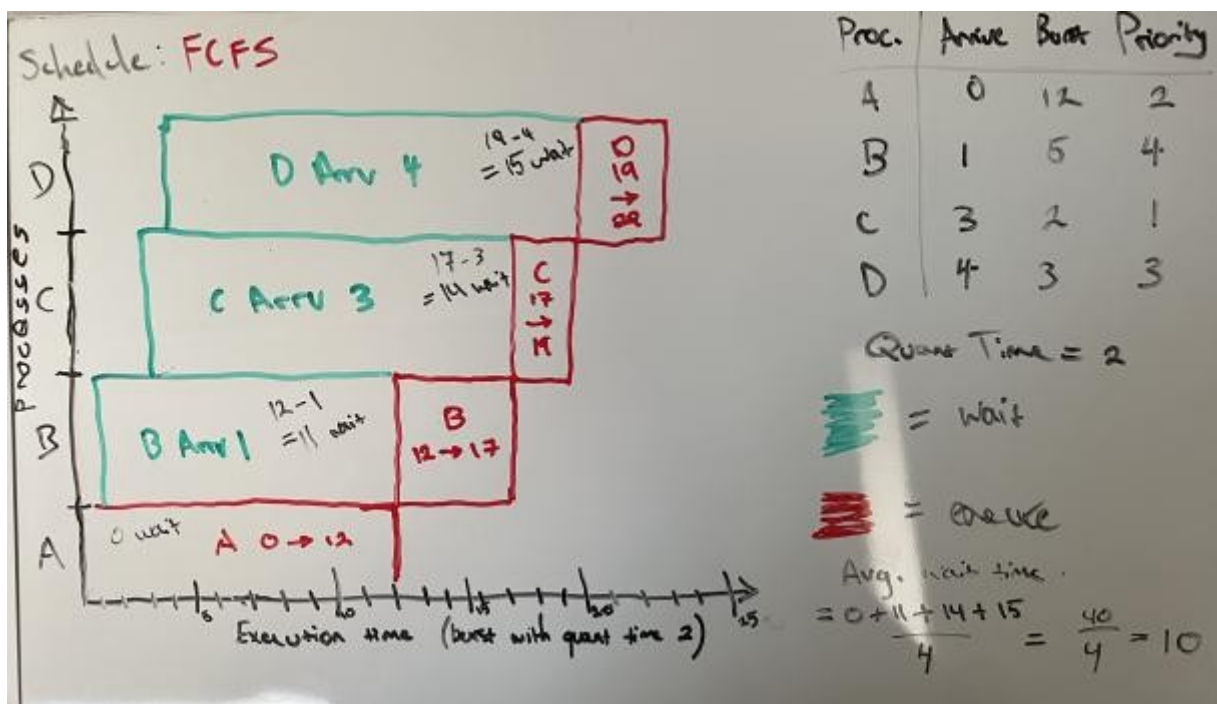 Schedule: FCFS
D
C
B
A
Processes
D Arrv 4
19-4
= 15 wait
D
19
→
22
C Arrv 3
17-3
= 14 wait
C
17
→
19
B Arrv 1
12-1
= 11 wait
B
12 → 17
0 wait
A 0 → 12
5 10 15 20 25
Execution time (burst with quant time 2)
Proc. Arrive Burst Priority
A 0 12 2
B 1 5 4
C 3 2 1
D 4 3 3
Quant Time = 2
= wait
= execute
Avg. wait time.
= 0 + 11 + 14 + 15
4
= 40
4
= 10